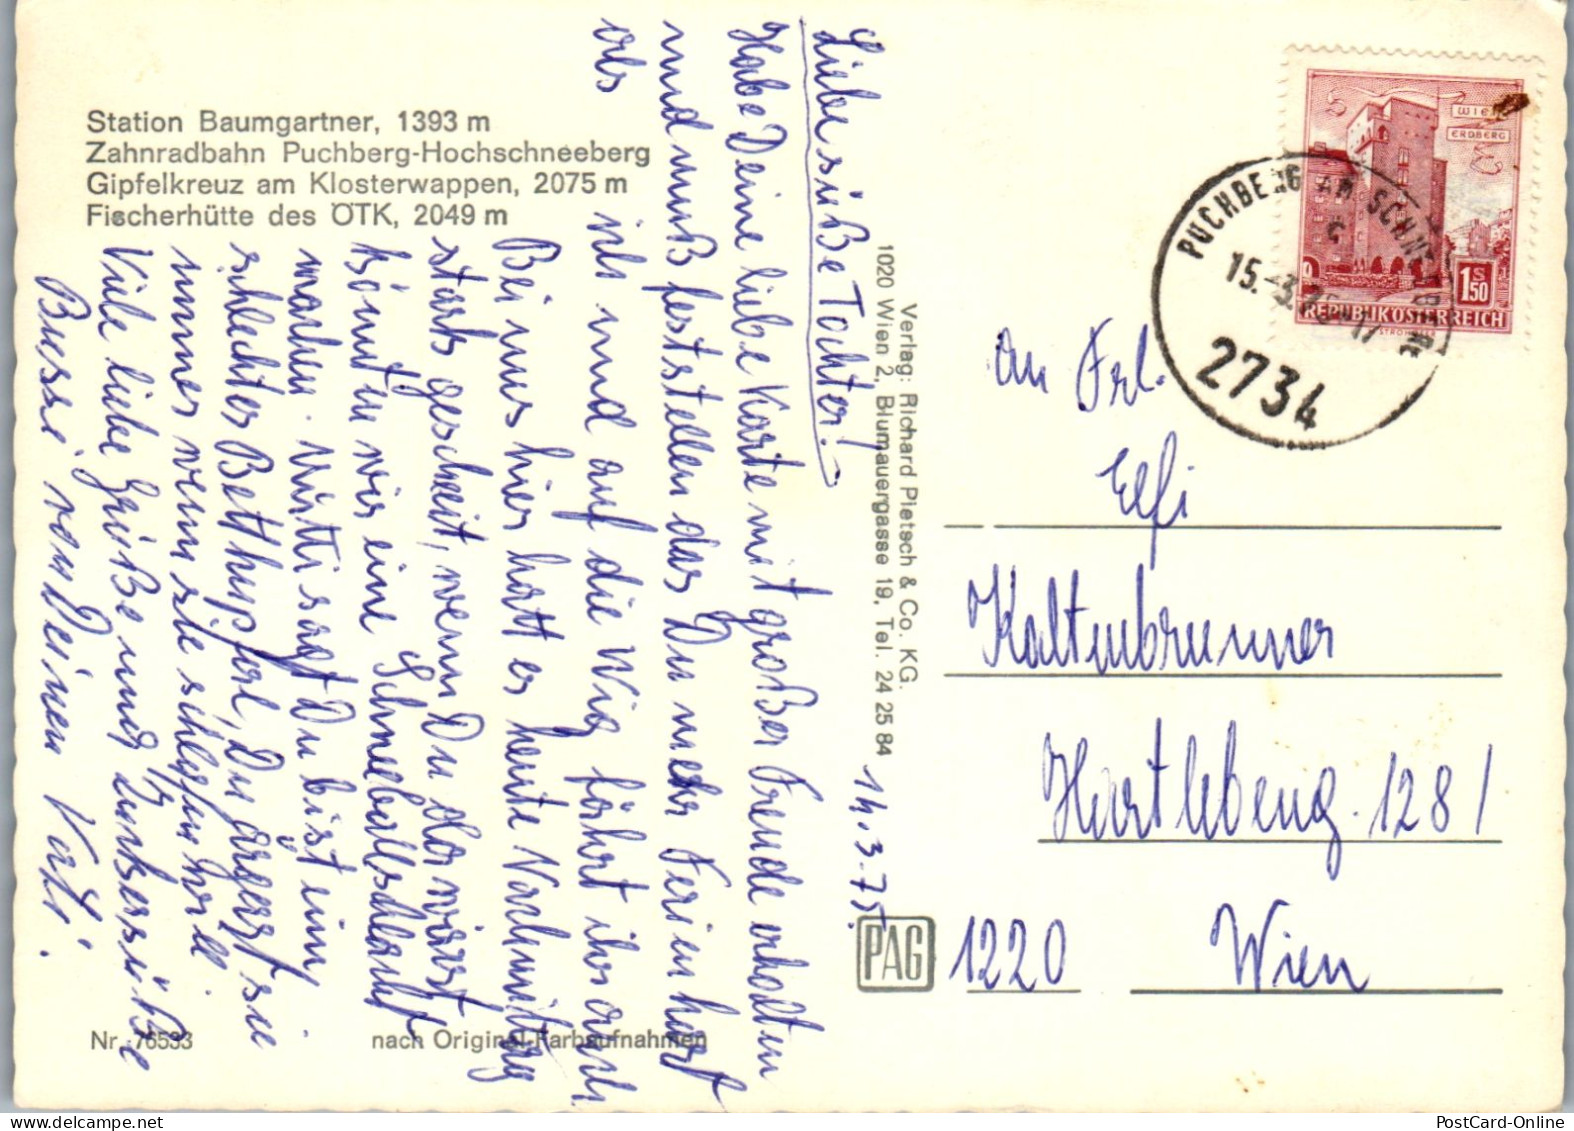 Station Baumgartner, 1393 m
Zahnradbahn Puchberg-Hochschneeberg
Gipfelkreuz am Klosterwappen, 2075 m
Fischerhütte des ÖTK, 2049 m
14.3.75.
Liebe süße Tochter!
Habe Deine liebe Karte mit großer Freude erhalten
und muß feststellen das Du mehr Ferien hast
als ich und auf die Wig fährt ihr auch
Bei uns hier hatt es heute Vormittag
stark gescheit, wenn Du da wärst
könnten wir eine Schneeballschlacht
machen. Mutti sagt Du bist ein
schlechtes Betthupferl, Du ärgerst sie
immer wenn sie schlafen will
Viele liebe Grüße und Zuckersüße
Bussi von Deinen Vati.
Verlag: Richard Pietsch & Co. KG.
1020 Wien 2, Blumauergasse 19, Tel. 24 25 84
PAG
Nr. 76533
nach Original-Farbaufnahmen
WIEN
ERDBERG
1 S 50
REPUBLIK ÖSTERREICH
PUCHBERG AM SCHNEEBERG
c
15.-3.75-17
2734
An Frl.
Elfi
Kaltenbrunner
Hartlebeng. 128/
1220 Wien
PostCard-Online